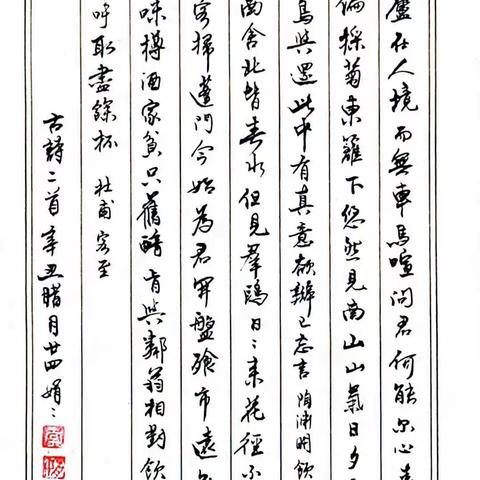 廬在人境而無車馬喧問君何能尔心遠
偏採菊東籬下悠然見南山山氣日夕
鳥與還此中有真意欲辨已忘言陶淵明飲
南舍北皆春水但見羣鷗日〻來花徑不
客掃蓬門今始為君開盤飧市遠
味樽酒家貧只舊醅肯與鄰翁相對飲
呼取盡餘杯 杜甫 客至
古詩二首辛丑臘月廿四娟〻